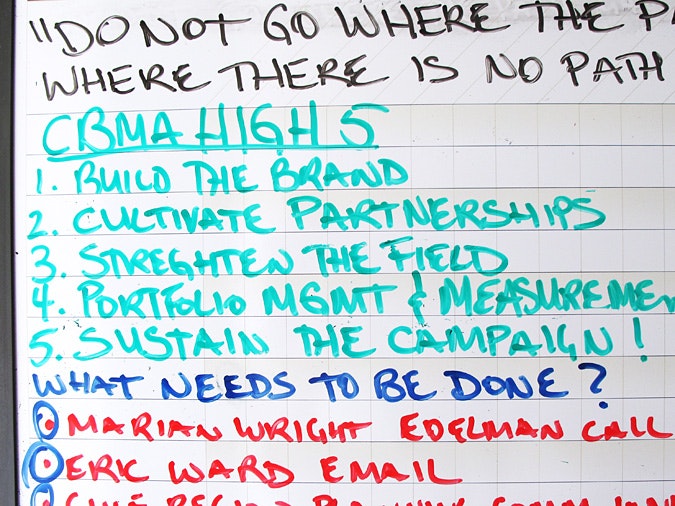 "DO NOT GO WHERE THE
WHERE THERE IS NO PATH
CBMA HIGH 5
1. BUILD THE BRAND
2. CULTIVATE PARTNERSHIPS
3. STREGHTEN THE FIELD
4. PORTFOLIO MGMT & MEASUREME
5. SUSTAIN THE CAMPAIGN!
WHAT NEEDS TO BE DONE?
MARIAN WRIGHT EDELMAN CALL
ERIC WARD EMAIL